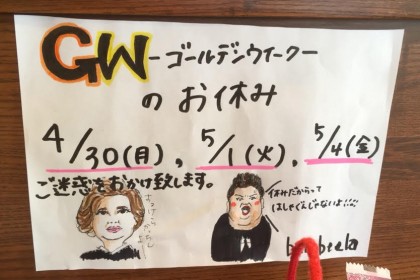 GW-ゴールデンウィークー
のお休み
4/30(月)，5/1(火)，5/4(金)
ご迷惑をおかけ致します。
休みだからって
はしゃぐんじゃないよ!!!